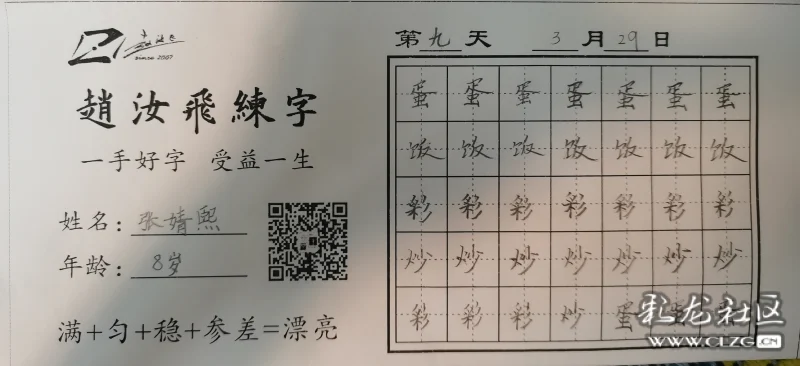 since 2007
第九天 3月29日
趙汝飛練字
一手好字 受益一生
姓名：张婧熙
年龄：8岁
满+匀+稳+参差=漂亮
蛋蛋蛋蛋蛋蛋蛋
饭饭饭饭饭饭饭
彩彩彩彩彩彩彩
炒炒炒炒炒炒炒
彩彩彩炒蛋
彩龙社区
WWW.CLZG.CN